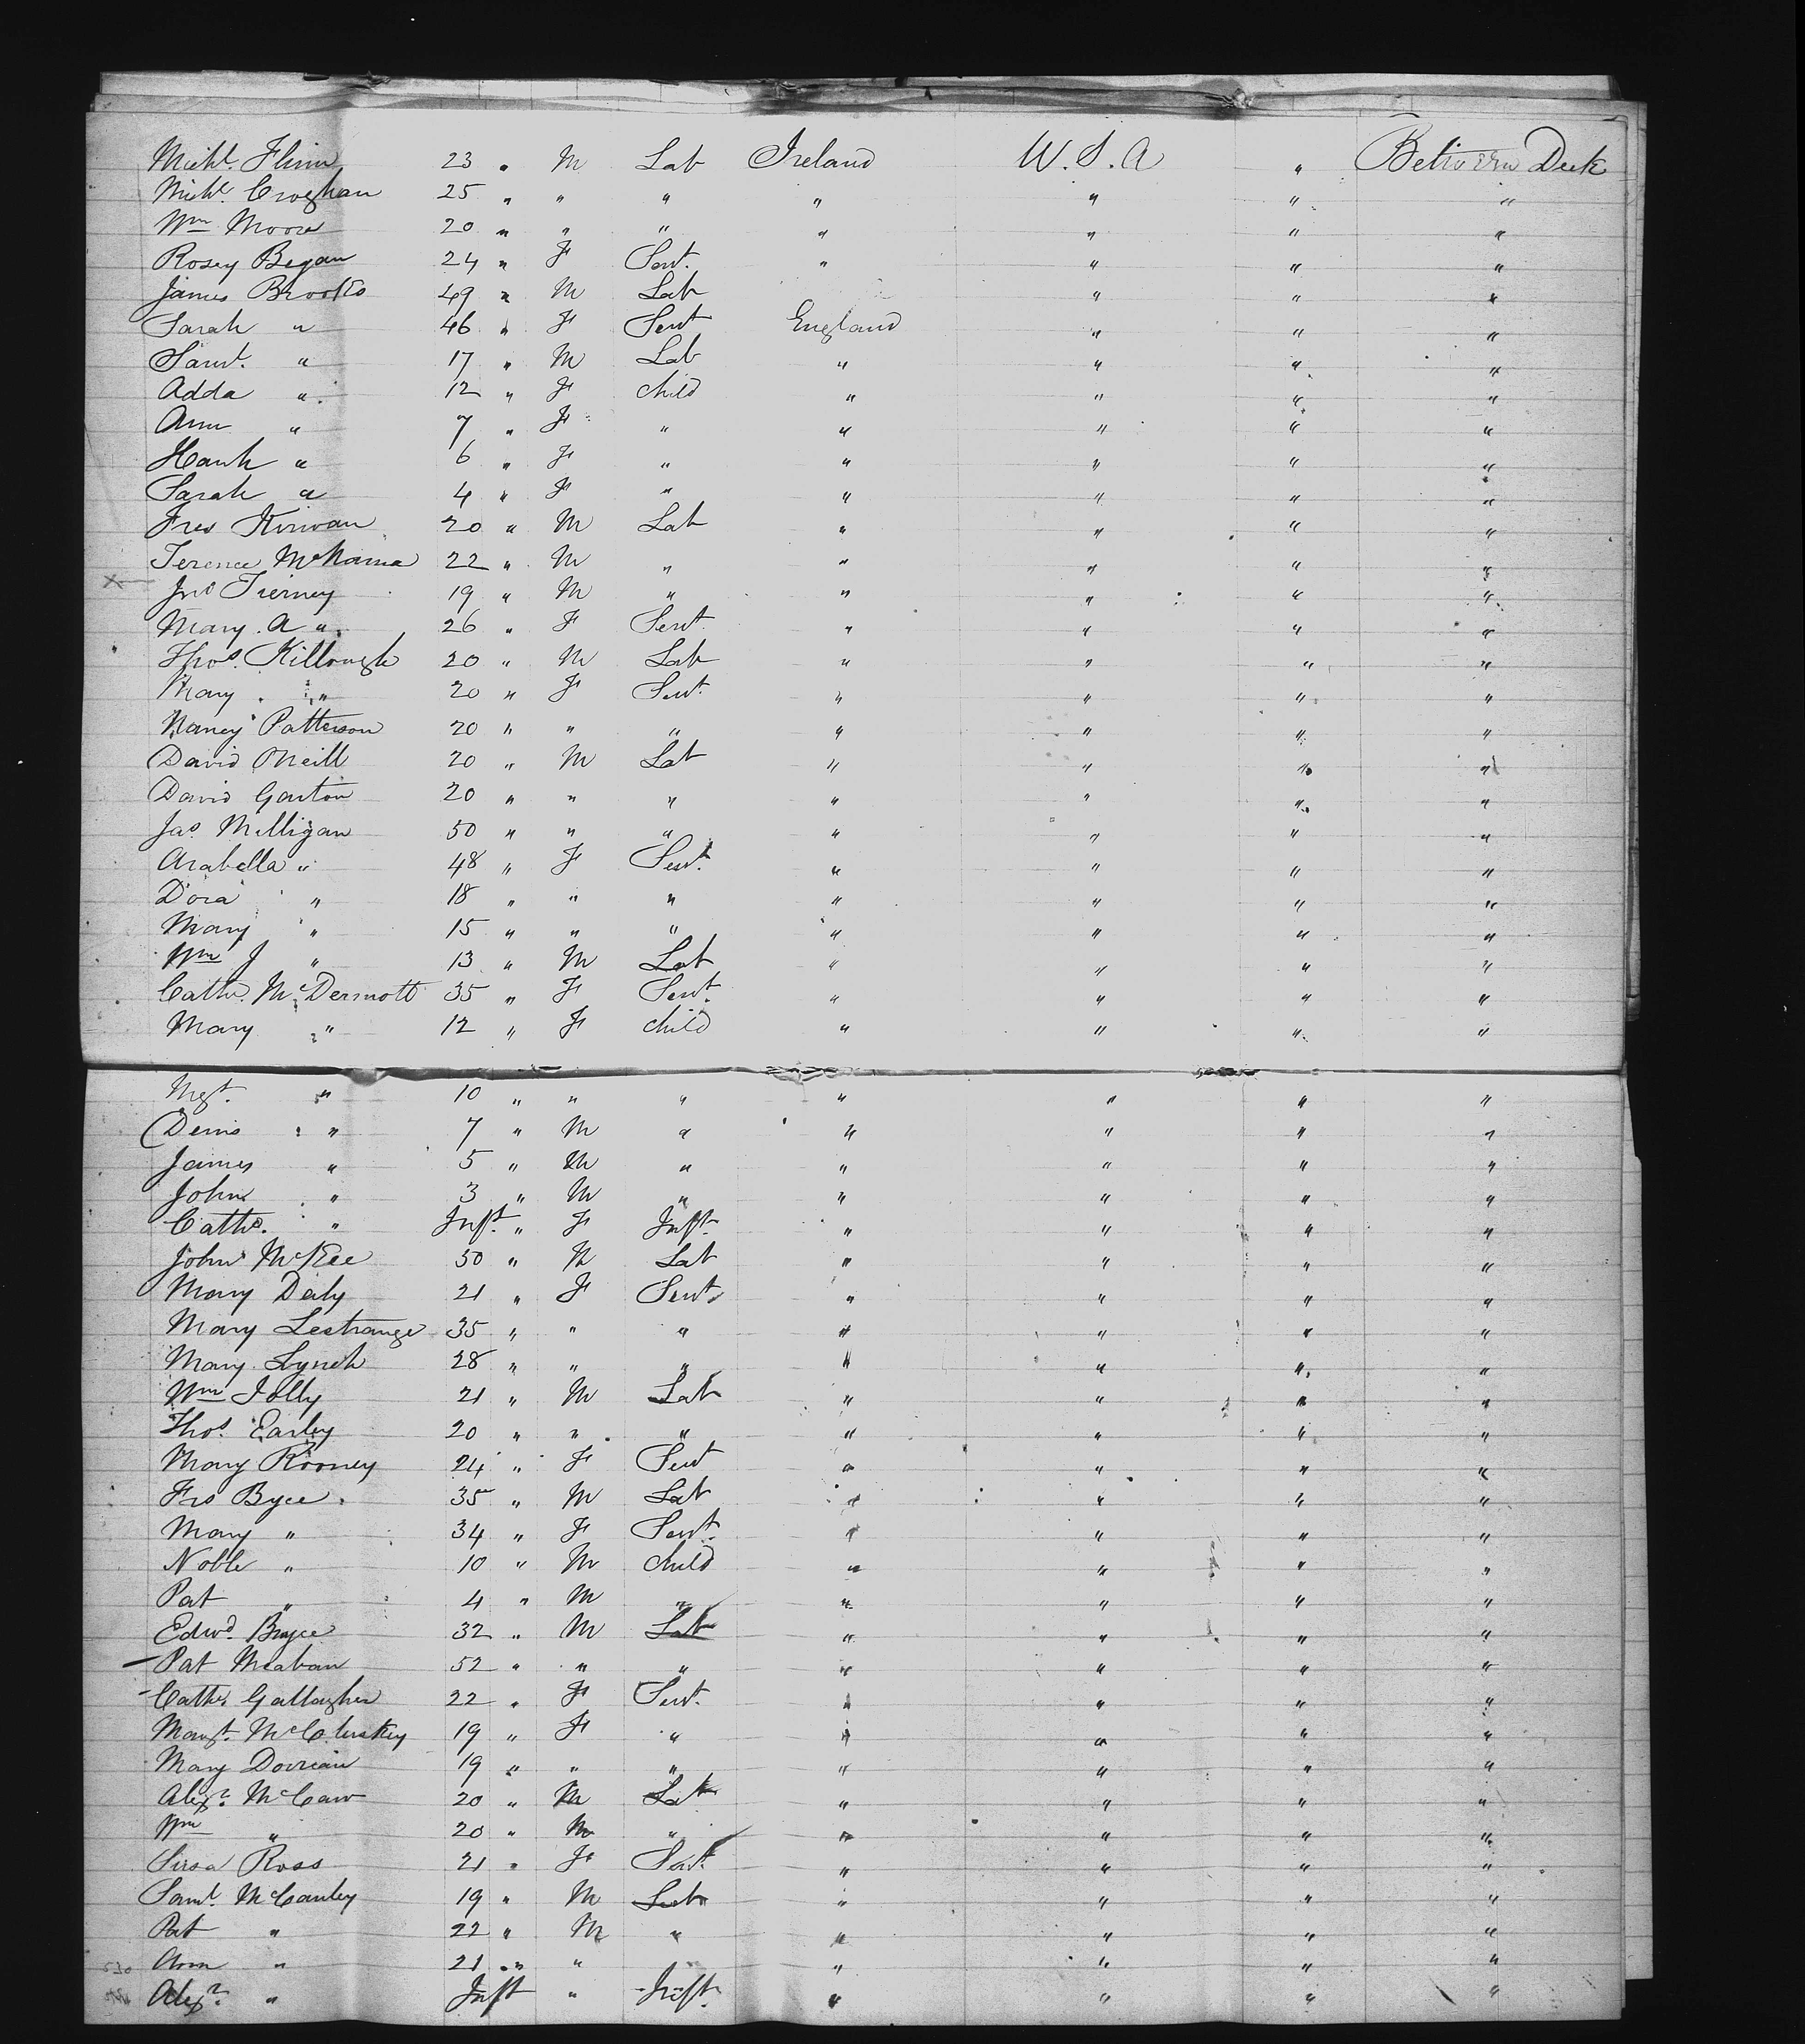 Michl. Flinn 23 " M Lab Ireland U.S.A " Between Deck
Michl. Croghan 25 " " " " " " "
Wm Moore 20 " " " " " " "
Rosey Began 24 " F Servt. " " " "
James Brooks 49 " M Lab " " "
Sarah " 46 " F Servt England " " "
Saml. " 17 " M Lab " " " "
Adda " 12 " F child " " " "
Ann " 7 " F " " " " "
Hanh " 6 " F " " " " "
Sarah " 4 " F " " " " "
Fres Kirwan 20 " M Lab " " " "
Terence McNama 22 " M " " " " "
Jno Tierney 19 " M " " " " "
Mary A " 26 " F Servt " " " "
Thos. Killough 20 " M Lab " " " "
Mary " 20 " F Servt. " " " "
Nancy Patterson 20 " " " " " " "
David ONeill 20 " M Lab " " " "
David Gaston 20 " " " " " " "
Jas. Milligan 50 " " " " " " "
Arabella " 48 " F Servt. " " " "
Dora " 18 " " " " " " "
Mary " 15 " " " " " " "
Wm J " 13 " M Lab " " " "
Cathe. McDermott 35 " F Servt. " " " "
Mary " 12 " F child " " " "
Mgt. " 10 " " " " " " "
Denis " 7 " M " " " " "
James " 5 " M " " " " "
John " 3 " M " " " " "
Cathe. " Inft. " F Inft. " " " "
John McKee 50 " M Lab " " " "
Mary Daly 21 " F Servt " " " "
Mary Lestrange 35 " " " " " " "
Mary Lynch 28 " " " " " " "
Wm Jolly 21 " M Lab " " " "
Thos. Earley 20 " " " " " " "
Mary Rooney 24 " F Servt " " " "
Frs Byce 35 " M Lab " " " "
Mary " 34 " F Servt. " " " "
Noble " 10 " M child " " " "
Pat " 4 " M " " " " "
Edwd. Bryce 32 " M Lab " " " "
Pat Meahan 52 " " " " " " "
Cathe. Gallagher 22 " F Servt. " " " "
Margt. McCluskey 19 " F " " " " "
Mary Dorrian 19 " " " " " " "
Alexr. McCaw 20 " M Lab " " " "
Wm " 20 " M " " " " "
Ross 21 " F Servt. " " " "
Saml. McCauley 19 " M Lab " " " "
Pat " 22 " M " " " " "
Ann " 21 " " " " " "
Alexr. " Inft " Inft. " " " "